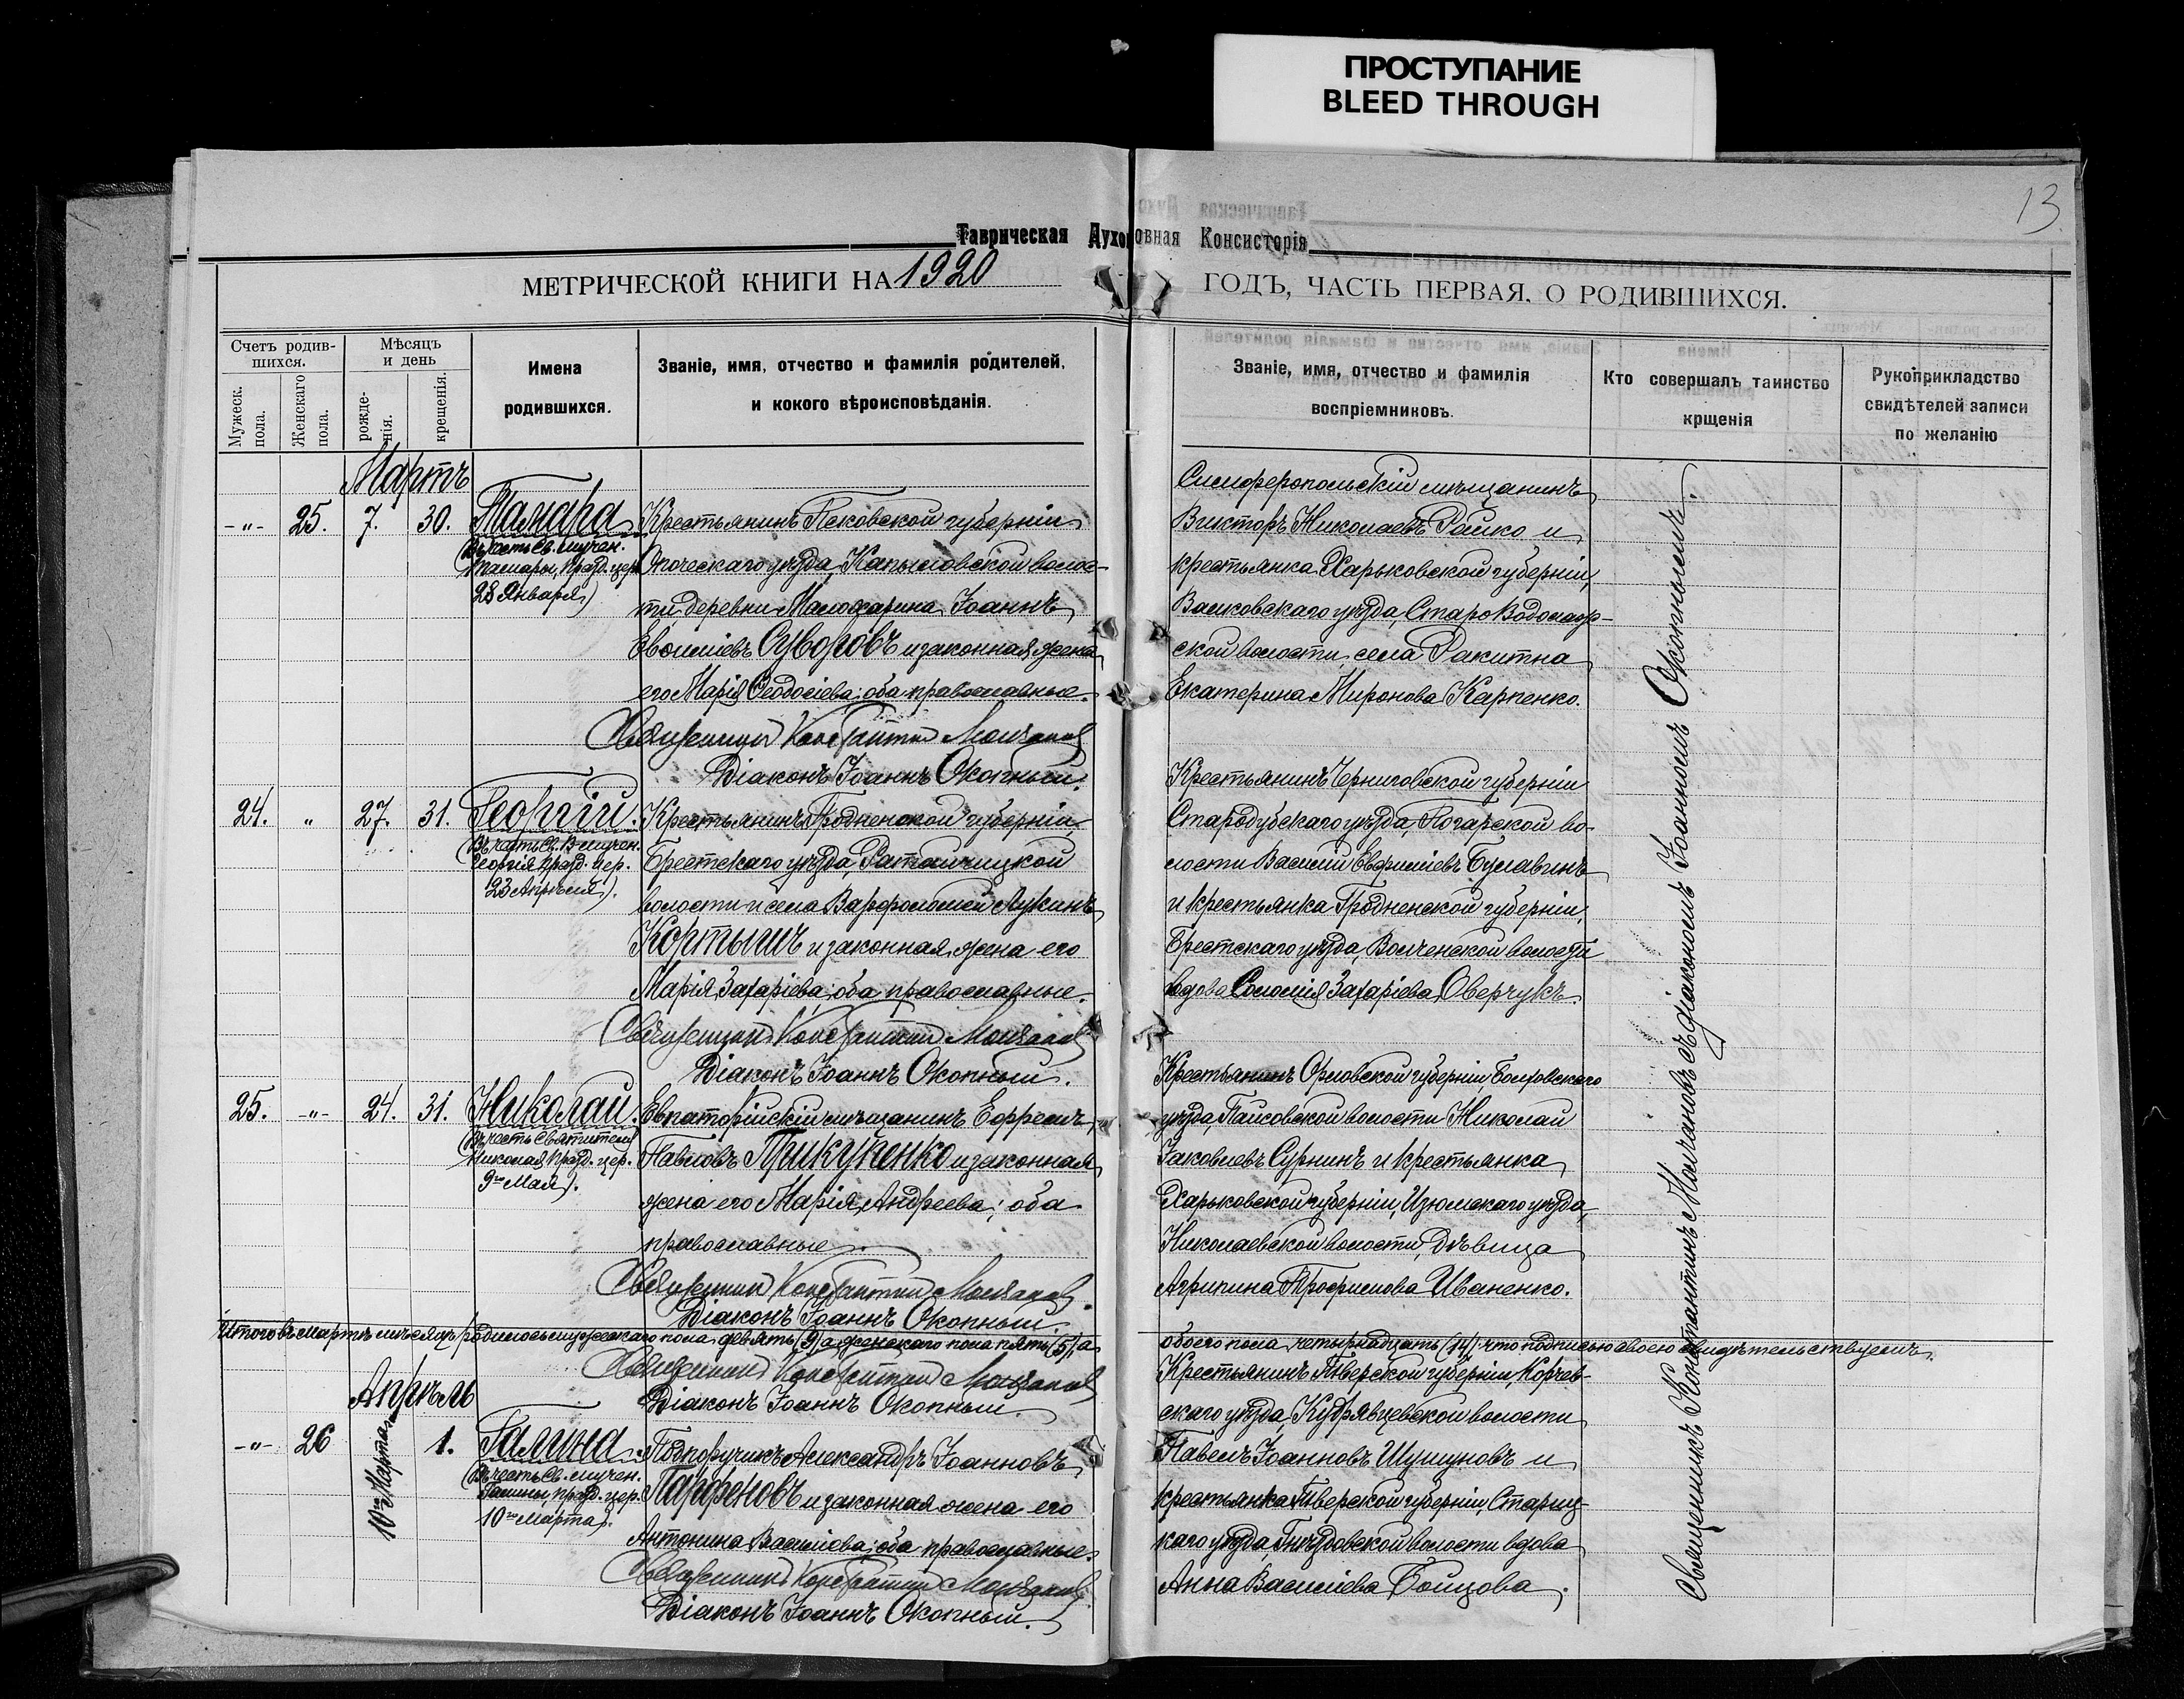 ПРОСТУПАНИЕ
BLEED THROUGH
13
Таврическая Духовная Консисторія
МЕТРИЧЕСКОЙ КНИГИ НА 1920 ГОДЪ, ЧАСТЬ ПЕРВАЯ, О РОДИВШИХСЯ.
Счетъ родив-
шихся.
Мужеск. пола.
Женскаго пола.
Мѣсяцъ
и день
рожде-
нія.
крещенія.
Имена
родившихся.
Званіе, имя, отчество и фамилія родителей,
и кокого вѣроисповѣданія.
Званіе, имя, отчество и фамилія
воспріемниковъ.
Кто совершалъ таинство
крщенія
Рукоприкладство
свидѣтелей записи
по желанію
Мартъ
-"- 25. 7. 30. Тамара
(Въ честь Св. мучен.
Тамары, празд. цер.
28 Января.)
Крестьянинъ Псковской губерніи,
Опоческаго уѣзда, волос-
ти, деревни Іоаннъ
Суворовъ и законная жена
его Марія Ѳеодосіева; оба православные.
Священникъ Константинъ Молчановъ
Діаконъ Іоаннъ Окопный.
Симферопольскій мѣщанинъ
Викторъ Николаевъ Рашко и
крестьянка Харьковской губерніи,
Валковскаго уѣзда, Старо Водолаж-
ской волости, села Ракитна
Екатерина Миронова Карпенко.
24. " 27. 31. Георгій.
(Въ честь Св. В. мучен.
Георгія празд. цер.
23 Апрѣля.)
Крестьянинъ Гродненской губерніи,
Брестскаго уѣзда, Ратайчицкой
волости и села Варфоломей Лукинъ
Кортышъ и законная жена его
Марія Захаріева; оба православные.
Священникъ Константинъ Молчановъ
Діаконъ Іоаннъ Окопный.
Крестьянинъ Черниговской губерніи
Стародубскаго уѣзда, Погарской во-
лости Василій Евфиміевъ Булавинъ
и крестьянка Гродненской губерніи,
Брестскаго уѣзда, Волченской волости
вдова Соломія Захаріева Оверчукъ.
25. -"- 24. 31. Николай.
(Въ честь Святителя
Николая празд. цер.
9го Мая).
Евпаторійскій мѣщанинъ Ефремъ
Павловъ Прикупенко и законная
жена его Марія Андреева; оба
православные.
Священникъ Константинъ Молчановъ.
Діаконъ Іоаннъ Окопный.
Крестьянинъ Орловской губерніи, Болховскаго
уѣзда, Паисовской волости Николай
Іаковлевъ Сурнинъ и крестьянка
Харьковской губерніи, Изюмскаго уѣзда,
Николаевской волости, Дѣвица
Агрипина Трофимова Иваненко.
Итого въ мартѣ мѣсяцѣ родилось мужескаго пола девять (9), а женскаго пола пять (5), а обоего пола четырнадцать (14), что подписью своею свидѣтельствуемъ.
Священникъ Константинъ Молчановъ
Діаконъ Іоаннъ Окопный.
Апрѣль
-"- 26 10го Марта 1. Галина.
(Въ честь Св. мучен.
Галины, празд. цер.
10го Марта).
Подпоручикъ Александръ Іоанновъ
Парфеновъ и законная жена его
Антонина Василіева; оба православные.
Священникъ Константинъ Молчановъ.
Діаконъ Іоаннъ Окопный.
Крестьянинъ Тверской губерніи, Корчев-
скаго уѣзда, Кудрявцевской волости
Павелъ Іоанновъ Шушуновъ и
крестьянка Тверской губерніи, Стариц-
каго уѣзда, Гнѣздовской волости вдова
Анна Василіева Бойцова.
Священникъ Константинъ Молчановъ съ діакономъ Іоанномъ Окопнымъ.